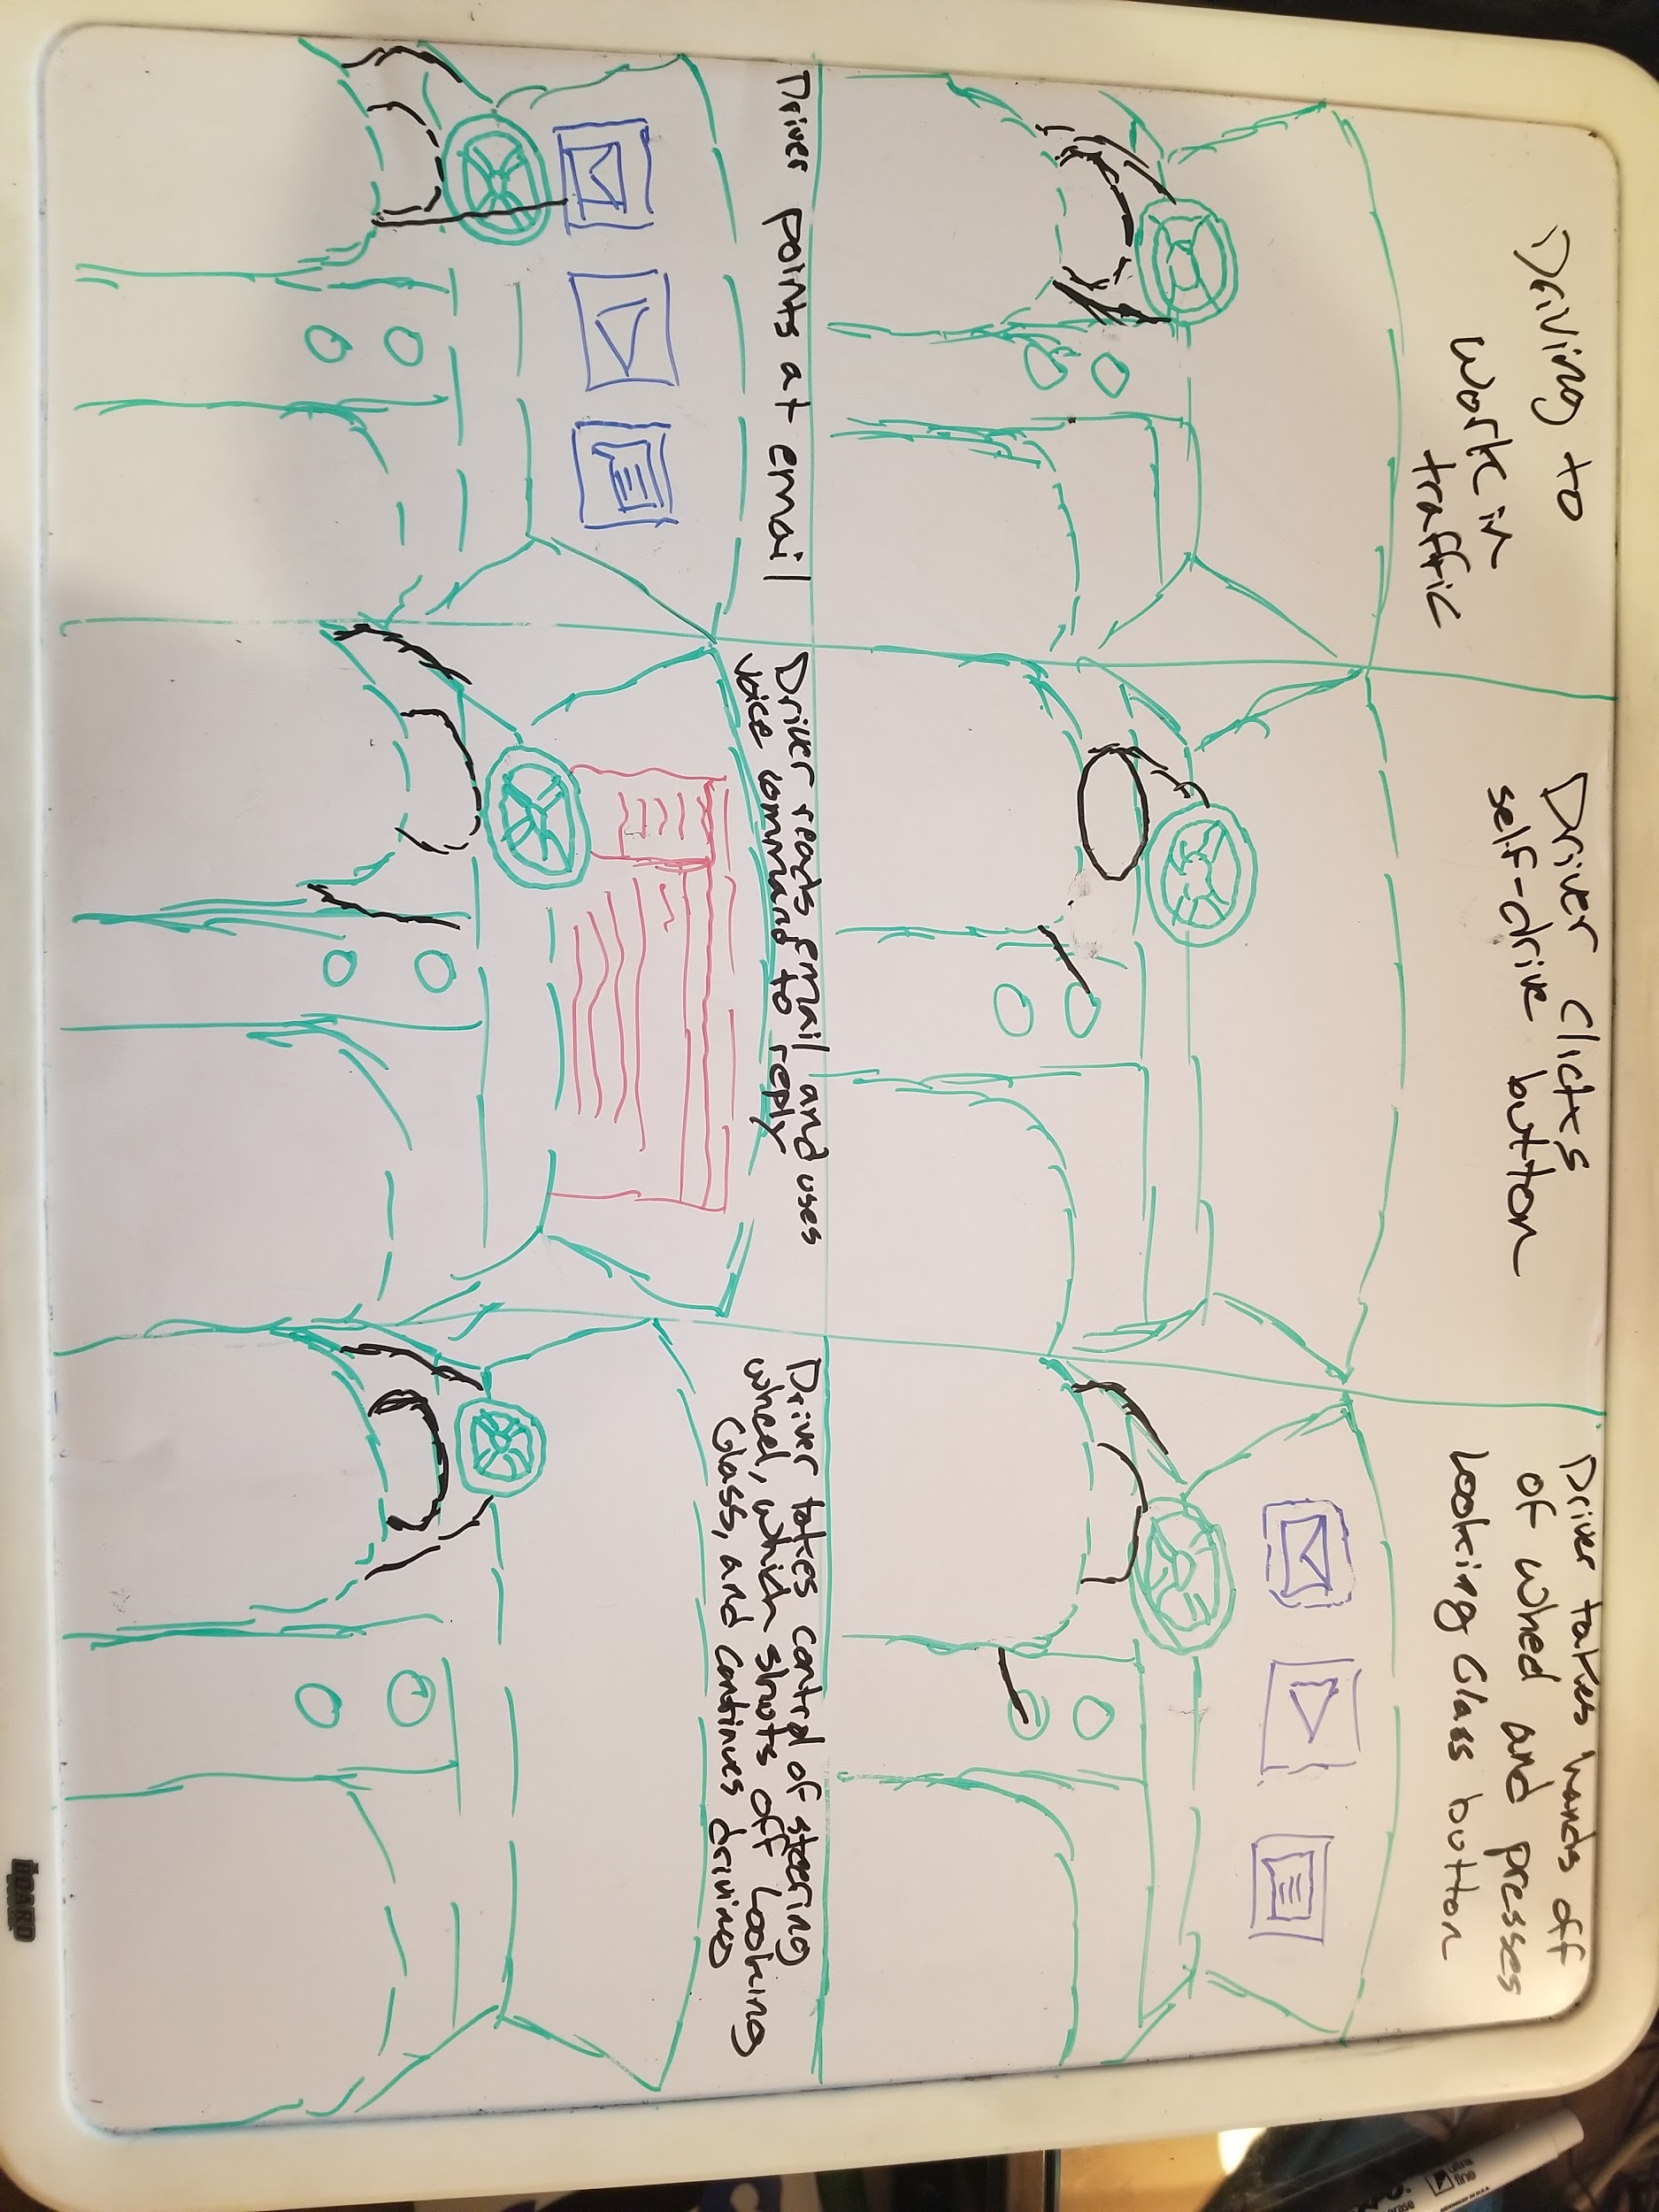 Driving to
work in
traffic
Driver clicks
self-drive button
Driver takes hands off
of wheel and presses
Looking Glass button
Driver points at email
Driver reads Email and uses
voice command to reply
Driver takes control of steering
wheel, which shuts off Looking
Glass, and continues driving
BOARD
ultra
fine
erase
ASSEMBLED IN U.S.A.